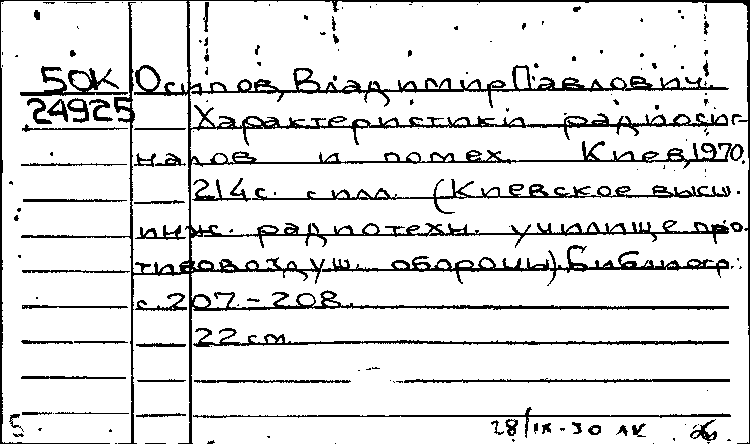 50К Осипов, Владимир Павлович.
24925 Характеристики радиосиг-
налов и помех. Киев, 1970.
214с. с илл. (Киевское высш.
инж. радиотехн. училище про-
тивовоздуш. обороны). Библиогр.:
с. 207-208.
22 см.
5 28/IX-30 АК